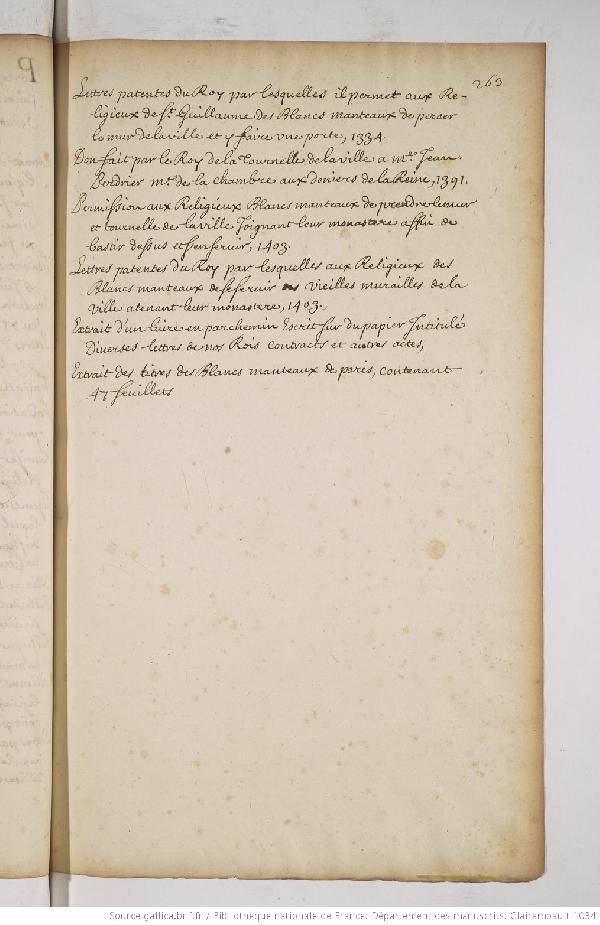 263
Lettres patentes du Roy par lesquelles il permet aux Re-
ligieux de St. Guillaume des Blancs manteaux de percer
le mur de la ville et y faire vne porte, 1334.
Don fait par le Roy de la Tournelle de la ville a me. Jean
Perdrier me. de la chambre aux deniers de la Reine, 1391.
Permission aux Religieux Blancs manteaux de prendre le mur
et tournelle de la ville Joignant leur monastere affin de
bastir dessus et s'en seruir, 1403.
Lettres patentes du Roy par lesquelles aux Religieux des
Blancs manteaux de se seruir des vieilles murailles de la
ville atenant leur monastere, 1403.
Extrait d'un liure en parchemin Escrit sur du papier Intitulé
Diuerses lettres de nos Rois contracts et autres actes,
Extrait des titres des Blancs manteaux de paris, contenant
47 feuillets
Source gallica.bnf.fr / Bibliothèque nationale de France. Département des manuscrits. Clairambault 1034